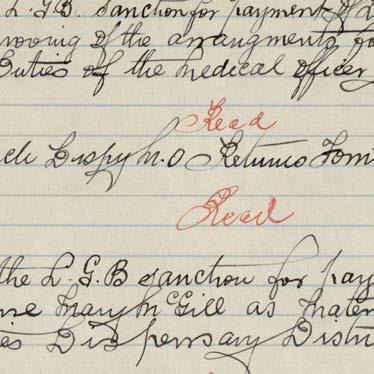 L.G.B. sanction for payment of
roving of the arrangments fo
Duties of the Medical Officer
Read
Dispy M.O Returns Fom
Read
the L.G.B sanction for pay
Mary McGill as Mater
es Dispensary Distri